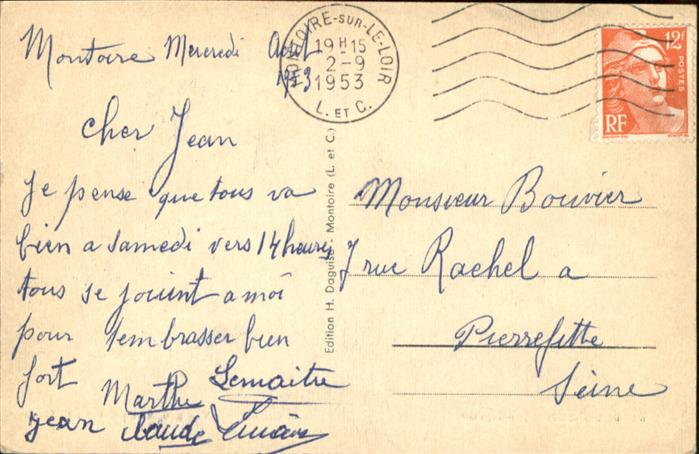 Montoire Mercredi Août
1953
cher Jean
Je pense que tous va
bien a samedi vers 14 heures
tous se jouint a moi
pour t'embrasser bien
fort Marthe Lemaitre
Jean Claude
MONTOIRE-SUR-LE-LOIR
19H15
2-9
1953
L. ET C.
12F
POSTES
RF
Edition H. Daguise, Montoire (L. et C.)
Monsieur Bouvier
7 rue Rachel a
Pierrefitte
Seine